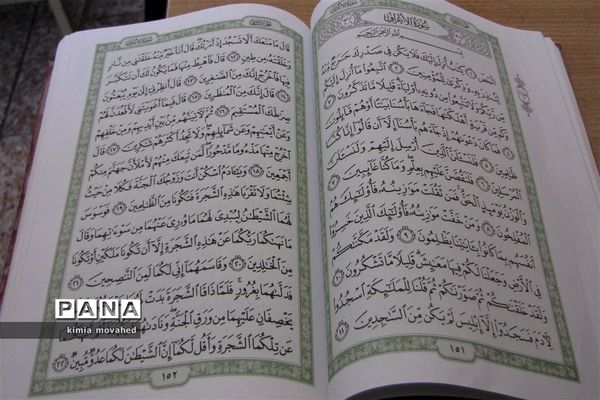 سُورَةُ الْأَعْرَافِ
بِسْمِ اللَّهِ الرَّحْمَٰنِ الرَّحِيمِ
الٓمٓصٓ ﴿١﴾ كِتَٰبٌ أُنزِلَ إِلَيْكَ فَلَا يَكُن فِي صَدْرِكَ حَرَجٌ مِّنْهُ
لِتُنذِرَ بِهِ وَذِكْرَىٰ لِلْمُؤْمِنِينَ ﴿٢﴾ اتَّبِعُوا مَا أُنزِلَ إِلَيْكُم
مِّن رَّبِّكُمْ وَلَا تَتَّبِعُوا مِن دُونِهِ أَوْلِيَاءَ قَلِيلًا مَّا تَذَكَّرُونَ ﴿٣﴾
وَكَم مِّن قَرْيَةٍ أَهْلَكْنَٰهَا فَجَاءَهَا بَأْسُنَا بَيَٰتًا أَوْ هُمْ قَائِلُونَ
﴿٤﴾ فَمَا كَانَ دَعْوَىٰهُمْ إِذْ جَاءَهُم بَأْسُنَا إِلَّا أَن قَالُوا إِنَّا كُنَّا
ظَٰلِمِينَ ﴿٥﴾ فَلَنَسْـَٔلَنَّ الَّذِينَ أُرْسِلَ إِلَيْهِمْ وَلَنَسْـَٔلَنَّ
الْمُرْسَلِينَ ﴿٦﴾ فَلَنَقُصَّنَّ عَلَيْهِم بِعِلْمٍ وَمَا كُنَّا غَائِبِينَ ﴿٧﴾
وَالْوَزْنُ يَوْمَئِذٍ الْحَقُّ فَمَن ثَقُلَتْ مَوَٰزِينُهُ فَأُولَٰئِكَ هُمُ
الْمُفْلِحُونَ ﴿٨﴾ وَمَنْ خَفَّتْ مَوَٰزِينُهُ فَأُولَٰئِكَ الَّذِينَ خَسِرُوا
أَنفُسَهُم بِمَا كَانُوا بِـَٔايَٰتِنَا يَظْلِمُونَ ﴿٩﴾ وَلَقَدْ مَكَّنَّٰكُمْ
فِي الْأَرْضِ وَجَعَلْنَا لَكُمْ فِيهَا مَعَٰيِشَ قَلِيلًا مَّا تَشْكُرُونَ
﴿١٠﴾ وَلَقَدْ خَلَقْنَٰكُمْ ثُمَّ صَوَّرْنَٰكُمْ ثُمَّ قُلْنَا لِلْمَلَٰئِكَةِ اسْجُدُوا
لِـَٔادَمَ فَسَجَدُوا إِلَّا إِبْلِيسَ لَمْ يَكُن مِّنَ السَّٰجِدِينَ ﴿١١﴾
١٥١
قَالَ مَا مَنَعَكَ أَلَّا تَسْجُدَ إِذْ أَمَرْتُكَ قَالَ أَنَا خَيْرٌ مِّنْهُ خَلَقْتَنِي مِن نَّارٍ
وَخَلَقْتَهُ مِن طِينٍ ﴿١٢﴾ قَالَ فَاهْبِطْ مِنْهَا فَمَا يَكُونُ لَكَ أَن تَتَكَبَّرَ
فِيهَا فَاخْرُجْ إِنَّكَ مِنَ الصَّٰغِرِينَ ﴿١٣﴾ قَالَ أَنظِرْنِي إِلَىٰ يَوْمِ يُبْعَثُونَ
﴿١٤﴾ قَالَ إِنَّكَ مِنَ الْمُنظَرِينَ ﴿١٥﴾ قَالَ فَبِمَا أَغْوَيْتَنِي لَأَقْعُدَنَّ لَهُمْ
صِرَٰطَكَ الْمُسْتَقِيمَ ﴿١٦﴾ ثُمَّ لَـَٔاتِيَنَّهُم مِّن بَيْنِ أَيْدِيهِمْ وَمِنْ خَلْفِهِمْ
وَعَنْ أَيْمَٰنِهِمْ وَعَن شَمَائِلِهِمْ وَلَا تَجِدُ أَكْثَرَهُمْ شَٰكِرِينَ ﴿١٧﴾ قَالَ
اخْرُجْ مِنْهَا مَذْءُومًا مَّدْحُورًا لَّمَن تَبِعَكَ مِنْهُمْ لَأَمْلَأَنَّ جَهَنَّمَ مِنكُمْ
أَجْمَعِينَ ﴿١٨﴾ وَيَٰـَٔادَمُ اسْكُنْ أَنتَ وَزَوْجُكَ الْجَنَّةَ فَكُلَا مِنْ حَيْثُ
شِئْتُمَا وَلَا تَقْرَبَا هَٰذِهِ الشَّجَرَةَ فَتَكُونَا مِنَ الظَّٰلِمِينَ ﴿١٩﴾ فَوَسْوَسَ
لَهُمَا الشَّيْطَٰنُ لِيُبْدِيَ لَهُمَا مَا وُورِيَ عَنْهُمَا مِن سَوْءَٰتِهِمَا وَقَالَ
مَا نَهَىٰكُمَا رَبُّكُمَا عَنْ هَٰذِهِ الشَّجَرَةِ إِلَّا أَن تَكُونَا مَلَكَيْنِ أَوْ تَكُونَا
مِنَ الْخَٰلِدِينَ ﴿٢٠﴾ وَقَاسَمَهُمَا إِنِّي لَكُمَا لَمِنَ النَّٰصِحِينَ ﴿٢١﴾
فَدَلَّىٰهُمَا بِغُرُورٍ فَلَمَّا ذَاقَا الشَّجَرَةَ بَدَتْ
يَخْصِفَانِ عَلَيْهِمَا مِن وَرَقِ الْجَنَّةِ وَنَادَىٰهُمَا
عَن تِلْكُمَا الشَّجَرَةِ وَأَقُل لَّكُمَا إِنَّ الشَّيْطَٰنَ لَكُمَا عَدُوٌّ مُّبِينٌ ﴿٢٢﴾
١٥٢
PANA
kimia movahed